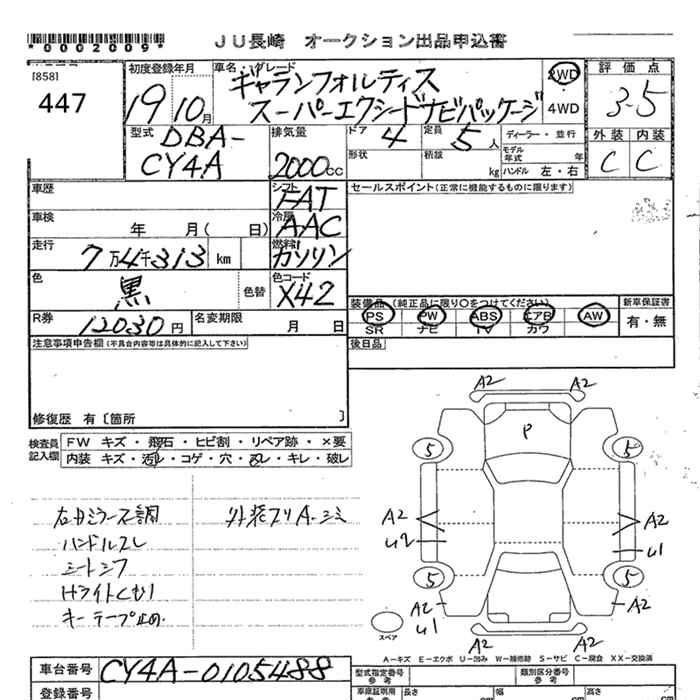 *0002009*
JU長崎 オークション出品申込書
[858]
447
初度登録年月
19年10月
車名・グレード
ギャランフォルティス
スーパーエクシードナビパッケージ
2WD
4WD
評価点
3.5
外装 内装
C C
型式
DBA-
CY4A
排気量
2000cc
ドア 4
形状
定員 5人
積載 kg
ディーラー・並行
モデル年式 年
ハンドル 左・右
車歴
シフト
FAT
セールスポイント(正常に機能するものに限ります)
車検 年 月( 日)
冷房
AAC
走行 7万4千313 km
燃料
ガソリン
色 黒 色替
色コード
X42
R券 12030円
名変期限 月 日
装備品(純正品に限り○をつけてください)
PS PW ABS エアB AW
SR ナビ TV カワ
新車保証書
有・無
注意事項申告欄(不具合内容等は具体的に記入して下さい)
後日品
修復歴 有〔箇所 〕
検査員記入欄
FW キズ・飛石・ヒビ割・リペア跡・×要
内装 キズ・汚れ・コゲ・穴・スレ・キレ・破レ
ハンドルスレ
シートシワ
Hライトくもり
キーテープ止め
外装スリA・シミ
A2 A2
P
5 5
A2 A2
U2 U1
5 5
A2 A2
U1
A2 A2
スペア
A-キズ E-エクボ U-凹み W-補修跡 S-サビ C-腐食 XX-交換済
車台番号 CY4A-0105488
登録番号
型式指定番号
参考
類別区分番号
参考
車庫証明用
参考
長さ 幅 高さ